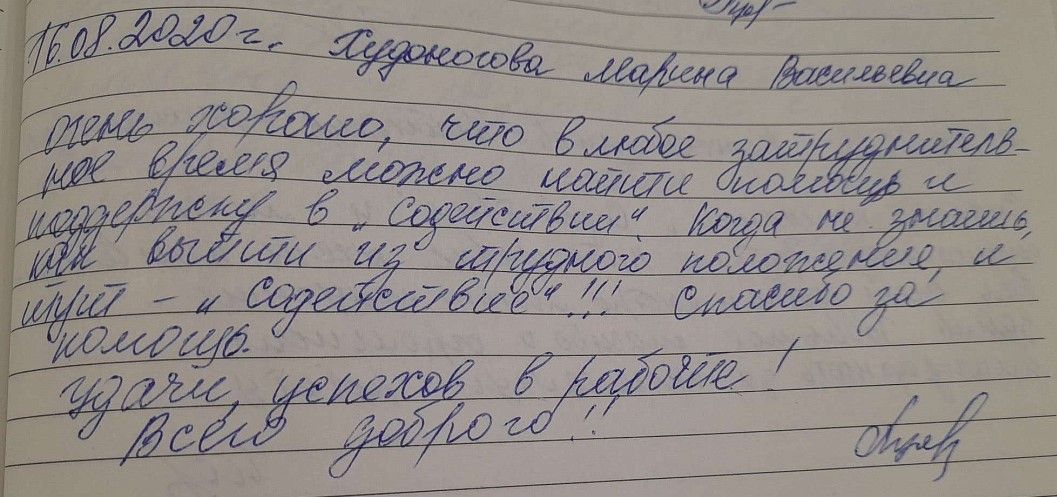 16.08.2020г. Худоногова Марина Васильевна
очень хорошо, что в любое затруднитель-
ное время можно найти помощь и
поддержку в „Содействии". Когда не знаешь,
как выйти из трудного положения, и
тут - „Содействие"!!! Спасибо за
помощь.
Удачи, успехов в работе!
Всего доброго!!